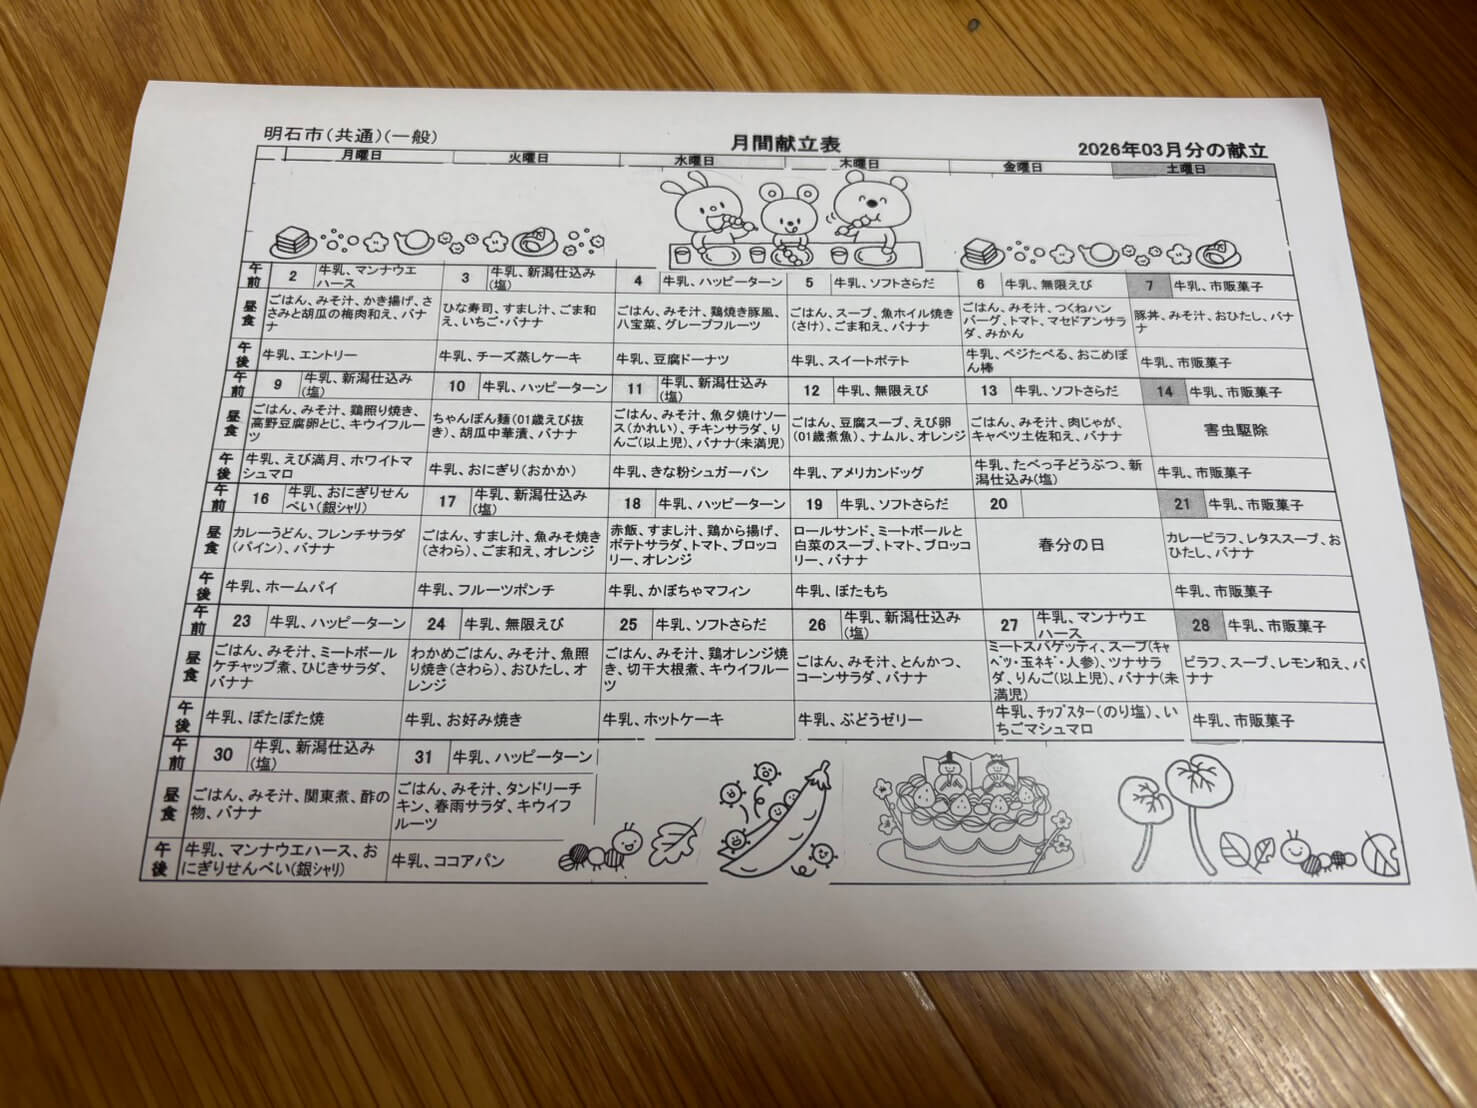 明石市(共通)(一般)
月間献立表
2026年03月分の献立
月曜日 火曜日 水曜日 木曜日 金曜日 土曜日
午前
2 牛乳、マンナウエハース
3 牛乳、新潟仕込み(塩)
4 牛乳、ハッピーターン
5 牛乳、ソフトさらだ
6 牛乳、無限えび
7 牛乳、市販菓子
昼食
ごはん、みそ汁、かき揚げ、さ
さみと胡瓜の梅肉和え、バナ
ナ
ひな寿司、すまし汁、ごま和
え、いちご・バナナ
ごはん、みそ汁、鶏焼き豚風、
八宝菜、グレープフルーツ
ごはん、スープ、魚ホイル焼き
(さけ)、ごま和え、バナナ
ごはん、みそ汁、つくねハン
バーグ、トマト、マセドアンサラ
ダ、みかん
豚丼、みそ汁、おひたし、バナ
ナ
午後
牛乳、エントリー
牛乳、チーズ蒸しケーキ
牛乳、豆腐ドーナツ
牛乳、スイートポテト
牛乳、ベジたべる、おこめぽ
ん棒
牛乳、市販菓子
午前
9 牛乳、新潟仕込み(塩)
10 牛乳、ハッピーターン
11 牛乳、新潟仕込み(塩)
12 牛乳、無限えび
13 牛乳、ソフトさらだ
14 牛乳、市販菓子
昼食
ごはん、みそ汁、鶏照り焼き、
高野豆腐卵とじ、キウイフルー
ツ
ちゃんぽん麺(01歳えび抜
き)、胡瓜中華漬、バナナ
ごはん、みそ汁、魚夕焼けソー
ス(かれい)、チキンサラダ、り
んご(以上児)、バナナ(未満児)
ごはん、豆腐スープ、えび卵
(01歳煮魚)、ナムル、オレンジ
ごはん、みそ汁、肉じゃが、
キャベツ土佐和え、バナナ
害虫駆除
午後
牛乳、えび満月、ホワイトマ
シュマロ
牛乳、おにぎり(おかか)
牛乳、きな粉シュガーパン
牛乳、アメリカンドッグ
牛乳、たべっ子どうぶつ、新
潟仕込み(塩)
牛乳、市販菓子
午前
16 牛乳、おにぎりせんべい(銀ｼｬﾘ)
17 牛乳、新潟仕込み(塩)
18 牛乳、ハッピーターン
19 牛乳、ソフトさらだ
20
21 牛乳、市販菓子
昼食
カレーうどん、フレンチサラダ
(パイン)、バナナ
ごはん、すまし汁、魚みそ焼き
(さわら)、ごま和え、オレンジ
赤飯、すまし汁、鶏から揚げ、
ポテトサラダ、トマト、ブロッコ
リー、オレンジ
ロールサンド、ミートボールと
白菜のスープ、トマト、ブロッコ
リー、バナナ
春分の日
カレーピラフ、レタススープ、お
ひたし、バナナ
午後
牛乳、ホームパイ
牛乳、フルーツポンチ
牛乳、かぼちゃマフィン
牛乳、ぼたもち
牛乳、市販菓子
午前
23 牛乳、ハッピーターン
24 牛乳、無限えび
25 牛乳、ソフトさらだ
26 牛乳、新潟仕込み(塩)
27 牛乳、マンナウエハース
28 牛乳、市販菓子
昼食
ごはん、みそ汁、ミートボール
ケチャップ煮、ひじきサラダ、
バナナ
わかめごはん、みそ汁、魚照
り焼き(さわら)、おひたし、オ
レンジ
ごはん、みそ汁、鶏オレンジ焼
き、切干大根煮、キウイフルー
ツ
ごはん、みそ汁、とんかつ、
コーンサラダ、バナナ
ミートスパゲッティ、スープ(ｷｬ
ﾍﾞﾂ・玉ﾈｷﾞ・人参)、ツナサラ
ダ、りんご(以上児)、バナナ(未
満児)
ピラフ、スープ、レモン和え、バ
ナナ
午後
牛乳、ぼたぼた焼
牛乳、お好み焼き
牛乳、ホットケーキ
牛乳、ぶどうゼリー
牛乳、ﾁｯﾌﾟｽﾀｰ(のり塩)、い
ちごマシュマロ
牛乳、市販菓子
午前
30 牛乳、新潟仕込み(塩)
31 牛乳、ハッピーターン
昼食
ごはん、みそ汁、関東煮、酢の
物、バナナ
ごはん、みそ汁、タンドリーチ
キン、春雨サラダ、キウイフ
ルーツ
午後
牛乳、マンナウエハース、お
にぎりせんべい(銀ｼｬﾘ)
牛乳、ココアパン